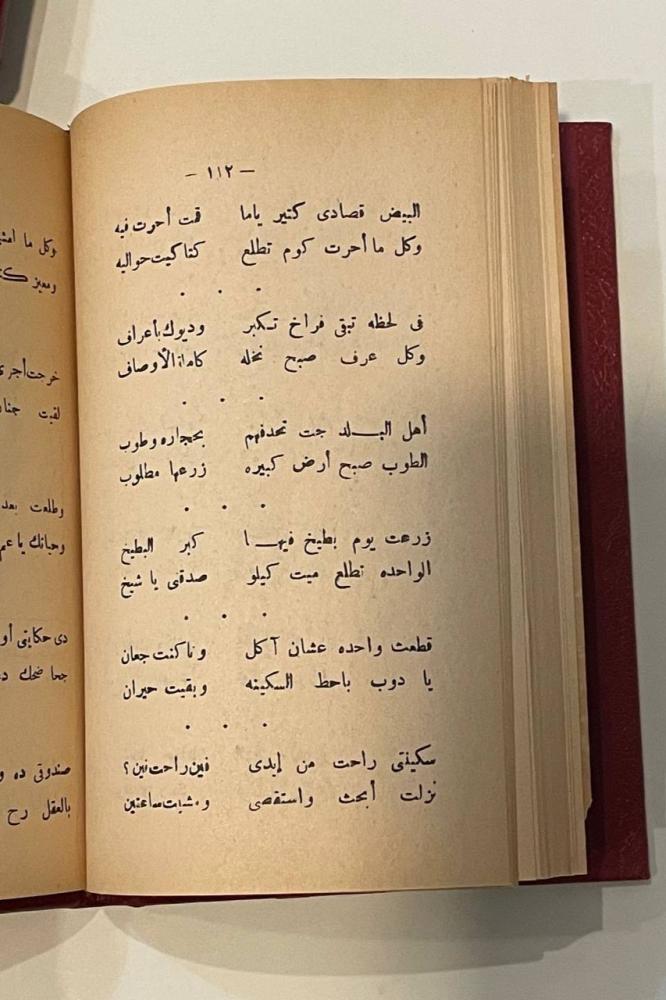 — ١١٢ —
البيض قصادى كتير ياما قمت أحرت فيه
وكل ما أحرت كوم تطلع كتاكيت حواليه
فى لحظه تبقى فراخ تكبر وديوك بأعراف
وكل عرف صبح نخله كاملة الأوصاف
أهل البلد جت تحدفهم بحجاره وطوب
الطوب صبح أرض كبيره زرعها مطلوب
زرعت يوم بطيخ فيها كبر البطيخ
الواحده تطلع ميت كيلو صدقى يا شيخ
قطعت واحده عشان آكل وناكنت جعان
يا دوب باحط السكينه وبقيت حيران
سكينتى راحت من إيدى فين راحت فين ؟
نزلت أبحث واستقصى ومشيت ساعتين
وكل ما
خرجت أجرى
لقيت
وطلعت بعد
وحياتك يا عم
دى حكايتى
جحا ضحك
صندوقى ده
بالعقل رح